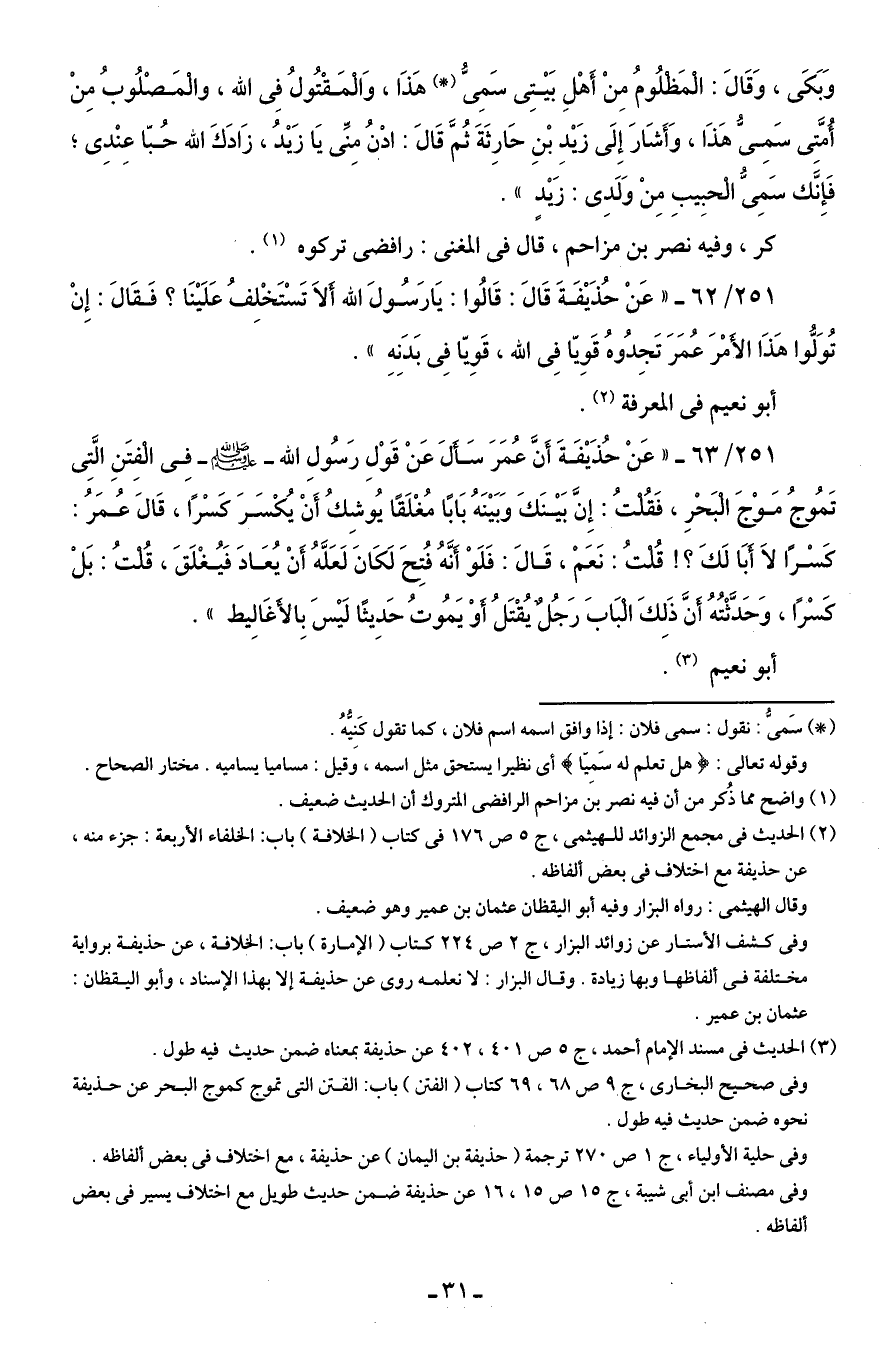 وَبَكَى ، وَقَالَ : الْمَظْلُومُ مِنْ أَهْلِ بَيْتِى سَمِىُّ (*) هَذَا ، وَالْمَقْتُولُ فِى الله ، والْمَصْلُوبُ مِنْ
أُمَّتِى سَمِىُّ هَذَا ، وَأَشَارَ إِلَى زَيْدِ بْنِ حَارِثَةَ ثُمَّ قَالَ : ادْنُ مِنِّى يَا زَيْدُ ، زَادَكَ الله حُبّا عِنْدِى ؛
فَإِنَّك سَمِىُّ الْحَبِيبِ مِنْ وَلَدِى : زَيْدٍ » .
كر ، وفيه نصر بن مزاحم ، قال فى المغنى : رافضى تركوه (١) .
٦٢/٢٥١ ـ « عَنْ حُذَيْفَةَ قَالَ : قَالُوا : يَارَسُولَ الله أَلاَ تَسْتَخْلِفُ عَلَيْنَا ؟ فَقَالَ : إِنْ
تُوَلُّوا هَذَا الأَمْرَ عُمَرَ تَجِدُوهُ قَوِيّا فِى الله ، قَوِيّا فِى بَدَنِهِ » .
أبو نعيم فى المعرفة (٢) .
٦٣/٢٥١ ـ « عَنْ حُذَيْفَةَ أَنَّ عُمَرَ سَأَلَ عَنْ قَوْلِ رَسُولِ الله ـ ﷺ ـ فِى الْفِتَنِ الَّتِى
تَمُوجُ مَوْجَ الْبَحْرِ ، فَقُلْتُ : إِنَّ بَيْنَكَ وَبَيْنَهُ بَابًا مُغْلَقًا يُوشِكُ أَنْ يُكْسَرَ كَسْرًا ، قَالَ عُمَرُ :
كَسْرًا لاَ أَبَا لَكَ ؟! قُلْتُ : نَعَمْ ، قَالَ : فَلَوْ أَنَّهُ فُتِحَ لَكَانَ لَعَلَّهُ أَنْ يُعَادَ فَيُغْلَقَ ، قُلْتُ : بَلْ
كَسْرًا ، وَحَدَّثْتُهُ أَنَّ ذَلِكَ الْبَابَ رَجُلٌ يُقْتَلُ أَوْ يَمُوتُ حَدِيثًا لَيْسَ بِالأَغَالِيط » .
أبو نعيم (٣) .
(*) سَمىُّ : نقول : سمى فلان : إذا وافق اسمه اسم فلان ، كما تقول كَنِيُّهُ .
وقوله تعالى : ﴿ هل تعلم له سَميّا ﴾ أى نظيرا يستحق مثل اسمه ، وقيل : مساميا يساميه . مختار الصحاح .
(١) واضح مما ذُكر من أن فيه نصر بن مزاحم الرافضى المتروك أن الحديث ضعيف .
(٢) الحديث فى مجمع الزوائد للهيثمى ، ج ٥ ص ١٧٦ فى كتاب ( الخلافة ) باب: الخلفاء الأربعة : جزء منه ،
عن حذيفة مع اختلاف فى بعض ألفاظه .
وقال الهيثمى : رواه البزار وفيه أبو اليقظان عثمان بن عمير وهو ضعيف .
وفى كشف الأستار عن زوائد البزار ، ج ٢ ص ٢٢٤ كتاب ( الإمارة ) باب: الخلافة ، عن حذيفة برواية
مختلفة فى ألفاظها وبها زيادة . وقال البزار : لا نعلمه روى عن حذيفة إلا بهذا الإسناد ، وأبو اليقظان :
عثمان بن عمير .
(٣) الحديث فى مسند الإمام أحمد ، ج ٥ ص ٤٠١ ، ٤٠٢ عن حذيفة بمعناه ضمن حديث فيه طول .
وفى صحيح البخارى ، ج ٩ ص ٦٨ ، ٦٩ كتاب ( الفتن ) باب: الفتن التى تموج كموج البحر عن حذيفة
نحوه ضمن حديث فيه طول .
وفى حلية الأولياء ، ج ١ ص ٢٧٠ ترجمة ( حذيفة بن اليمان ) عن حذيفة ، مع اختلاف فى بعض ألفاظه .
وفى مصنف ابن أبى شيبة ، ج ١٥ ص ١٥ ، ١٦ عن حذيفة ضمن حديث طويل مع اختلاف يسير فى بعض
ألفاظه .
ـ ٣١ ـ